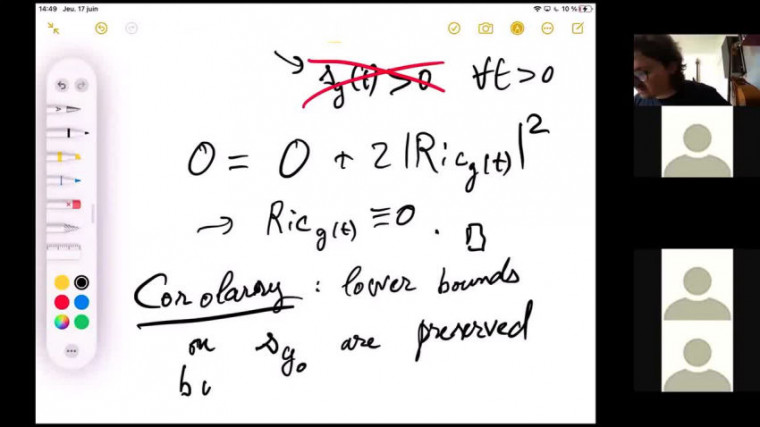 14:49 Jeu. 17 juin 10 %
→ s_g(t) > 0 ∀t > 0
0 = 0 + 2 |Ric_g(t)|²
→ Ric_g(t) ≡ 0 . □
Corolarry : lower bounds
on s_g₀ are preserved